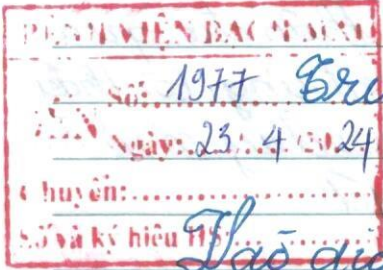 BỆNH VIỆN BẠCH MAI
ĐẾN Số: 1977
Ngày: 23.4.2024
Chuyển:
Số và ký hiệu HS: